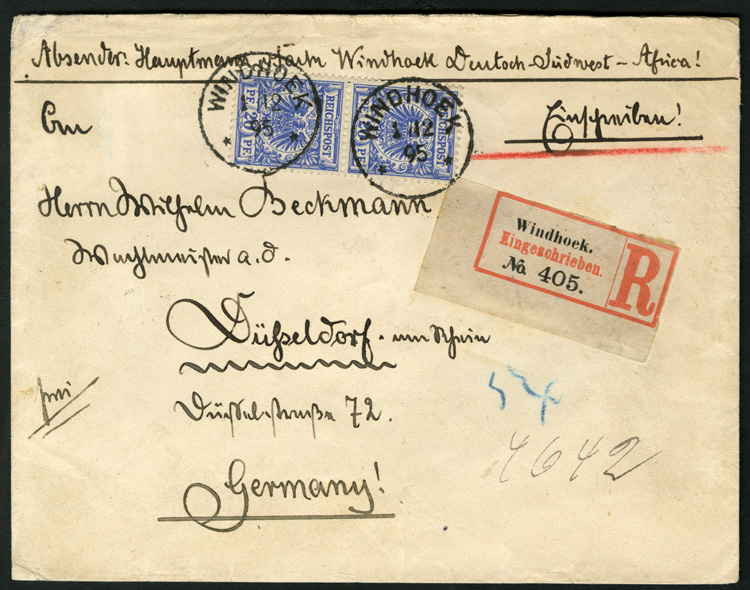 Absender: Hauptmann Windhoek Deutsch-Südwest-Afrika!
WINDHOEK
1 12
95
* *
WINDHOEK
1 12
95
* *
REICHSPOST
20 PF.
REICHSPOST
20 PF.
Einschreiben!
An
Herrn Wilhelm Beckmann
Wachtmeister a. d.
Düsseldorf am Rhein
Düsselstraße 72.
Germany!
frei
Windhoek.
Eingeschrieben.
No. 405.
R
4642